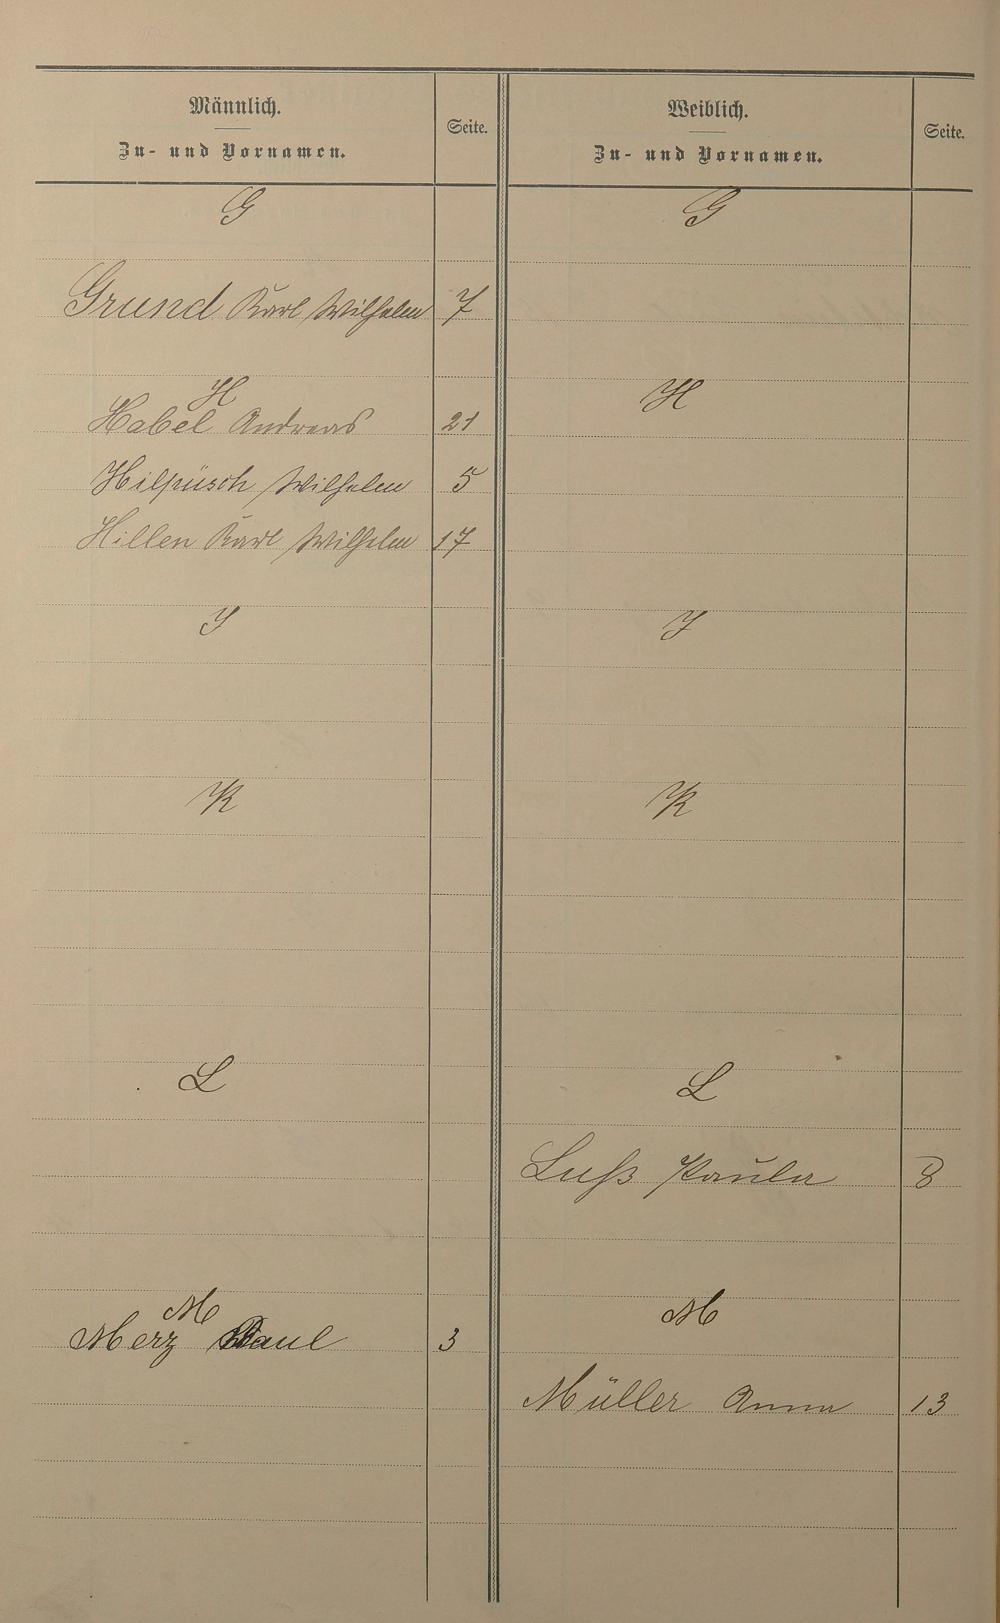 Männlich.
Zu- und Vornamen.
Seite.
G
Grund Karl Wilhelm 7
H
Habel Andreas 21
Hilpüsch Wilhelm 5
Hillen Karl Wilhelm 17
J
K
L
M
Merz Paul 3
Weiblich.
Zu- und Vornamen.
Seite.
G
H
J
K
L
Luß Paula 8
M
Müller Anna 13